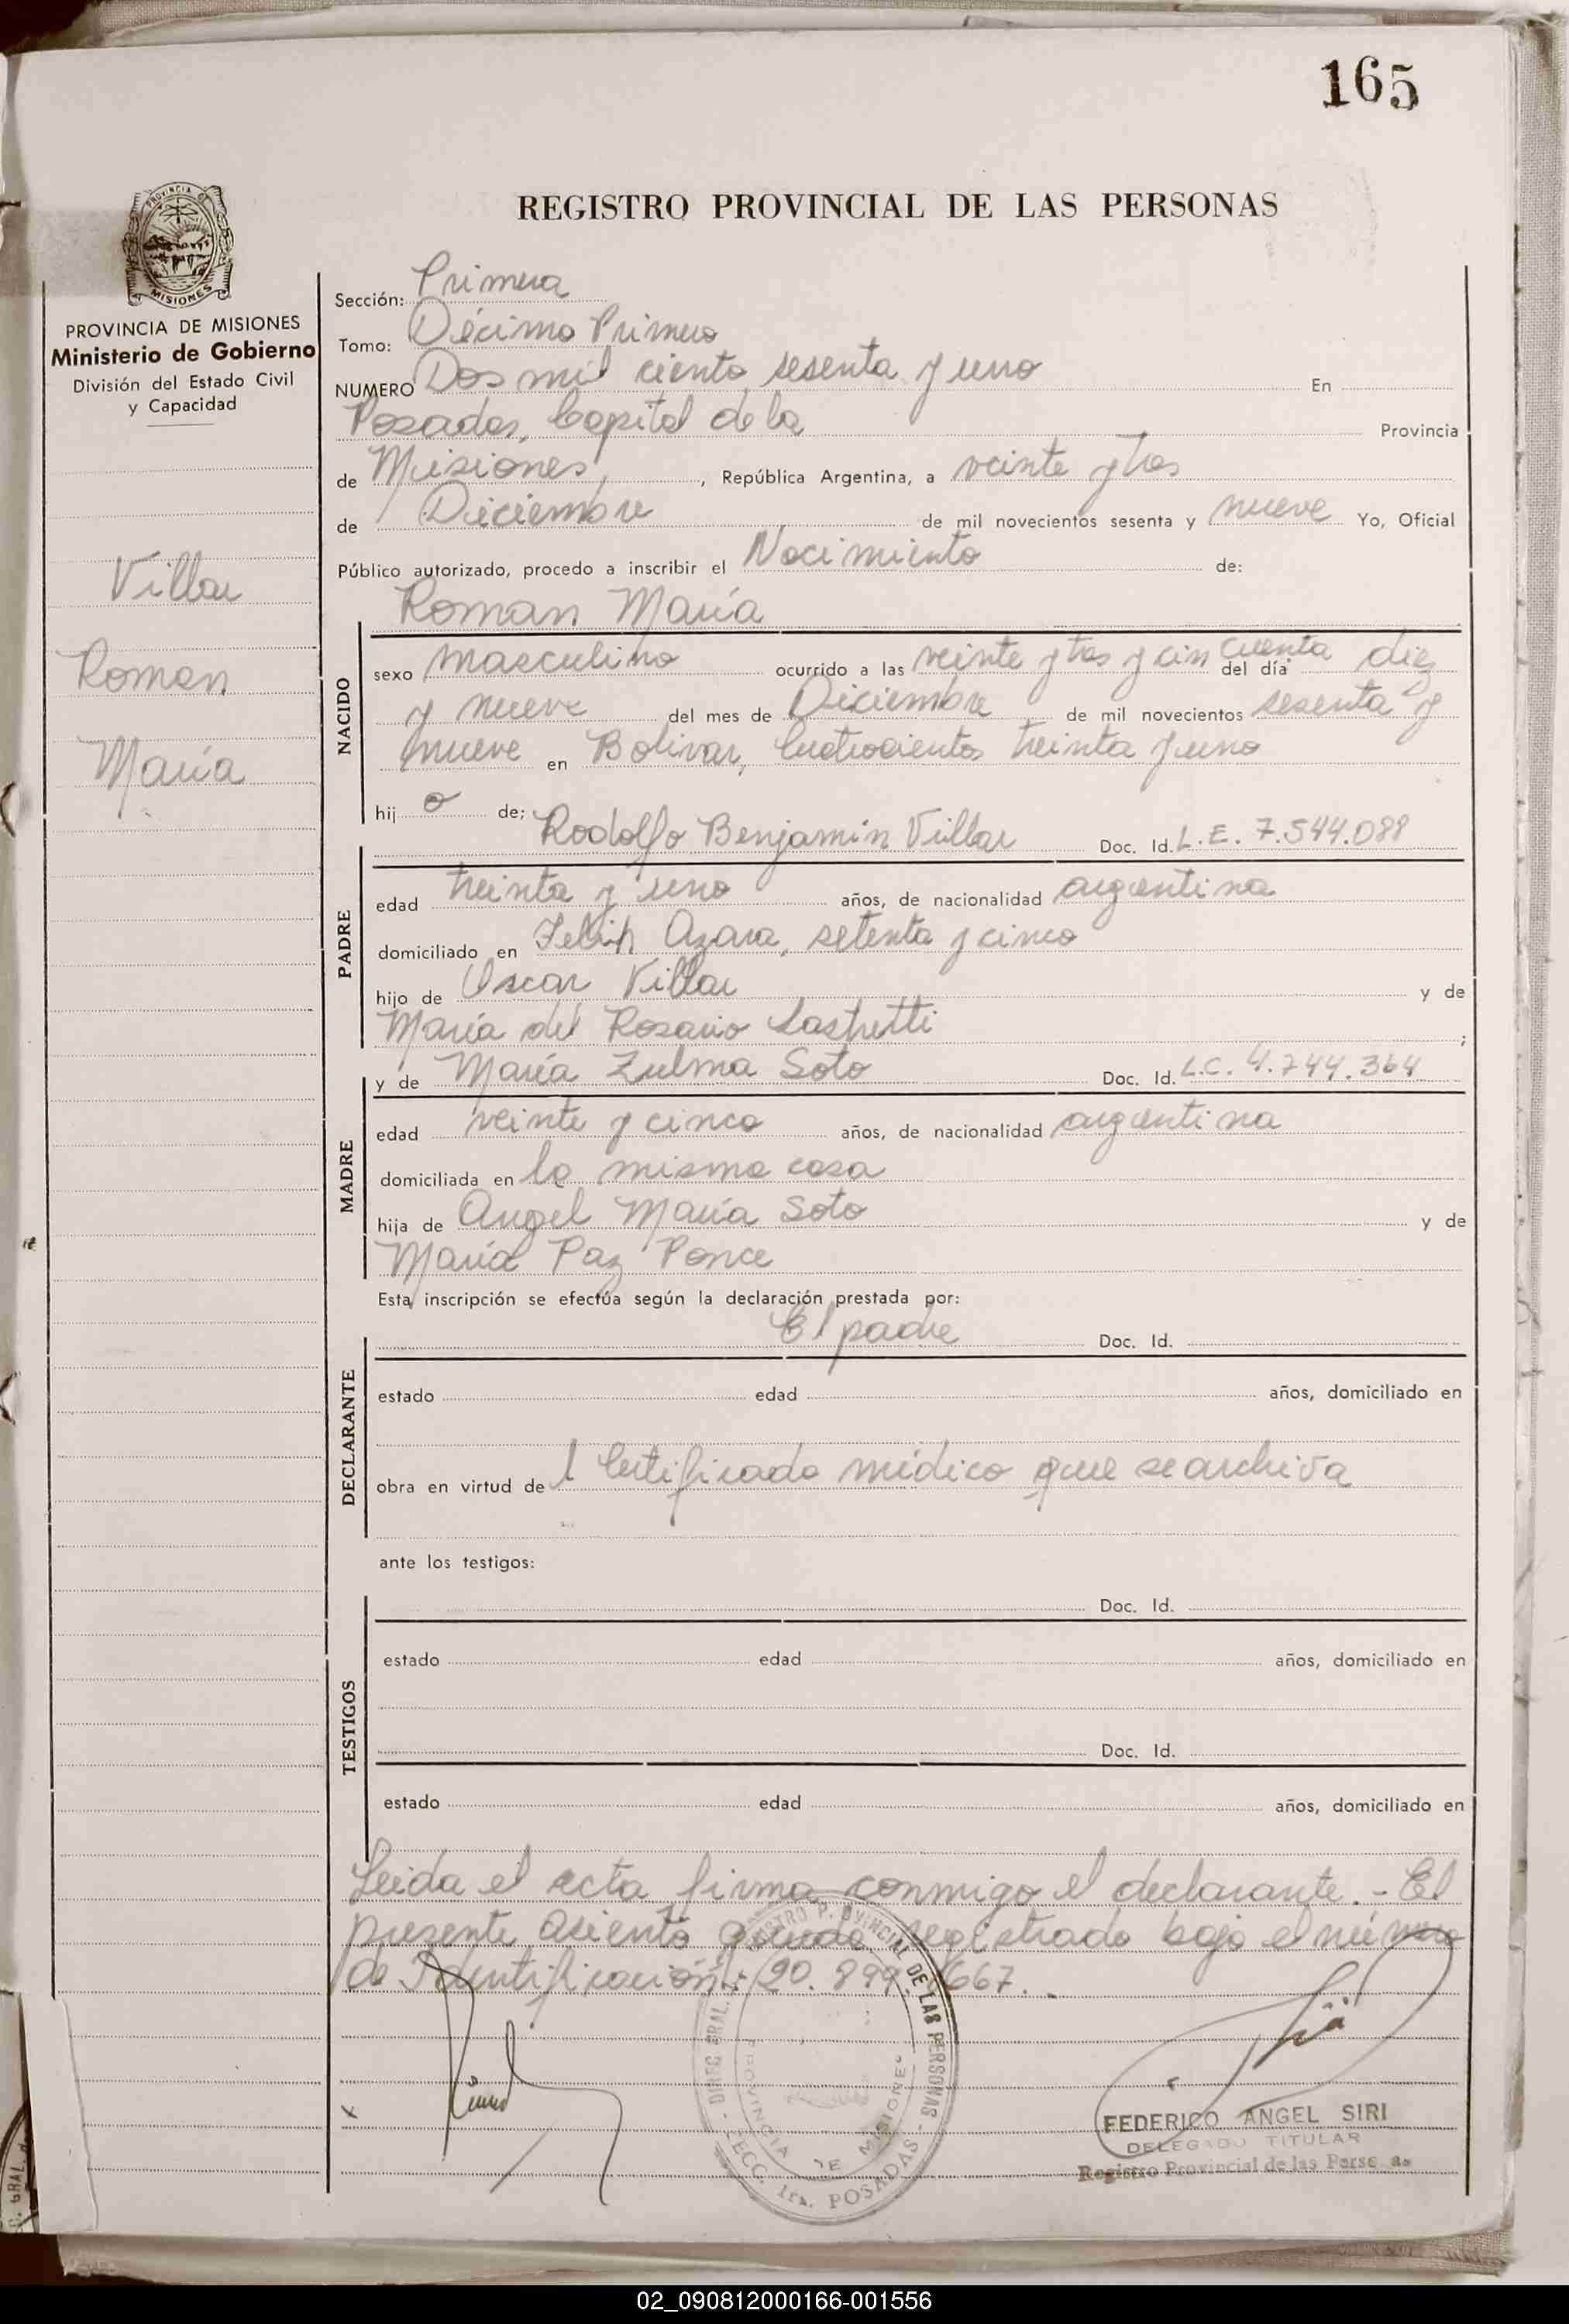 165
REGISTRO PROVINCIAL DE LAS PERSONAS
PROVINCIA DE
MISIONES
PROVINCIA DE MISIONES
Ministerio de Gobierno
División del Estado Civil
y Capacidad
Villar
Roman
María
Sección: Primera
Tomo: Décimo Primero
NUMERO Dos mil ciento sesenta y uno En
Posadas, Capital de la Provincia
de Misiones, República Argentina, a veinte y tres
de Diciembre de mil novecientos sesenta y nueve Yo, Oficial
Público autorizado, procedo a inscribir el Nacimiento de:
Roman María
NACIDO
sexo masculino ocurrido a las veinte y tres y cincuenta del día diez
y nueve del mes de Diciembre de mil novecientos sesenta y
nueve en Bolivar, Cuatrocientos treinta y uno
hij o de: Rodolfo Benjamin Villar Doc. Id. L.E. 7.544.089
PADRE
edad treinta y uno años, de nacionalidad argentina
domiciliado en Azara, setenta y cinco
hijo de Oscar Villar y de
María del Rosario Lastretti;
MADRE
y de María Zulma Soto Doc. Id. L.C. 4.744.364
edad veinte y cinco años, de nacionalidad argentina
domiciliada en la misma casa
hija de Angel María Soto y de
María Paz Ponce
Esta inscripción se efectúa según la declaración prestada por:
El padre Doc. Id.
DECLARANTE
estado edad años, domiciliado en
obra en virtud de l Certificado médico que se archiva
ante los testigos:
Doc. Id.
TESTIGOS
estado edad años, domiciliado en
Doc. Id.
estado edad años, domiciliado en
Leida el acta firma conmigo el declarante.- El
presente asiento queda registrado bajo el número
de Identificación: 20.899.667.-
FEDERICO ANGEL SIRI
DELEGADO TITULAR
Registro Provincial de las Personas
02_090812000166-001556